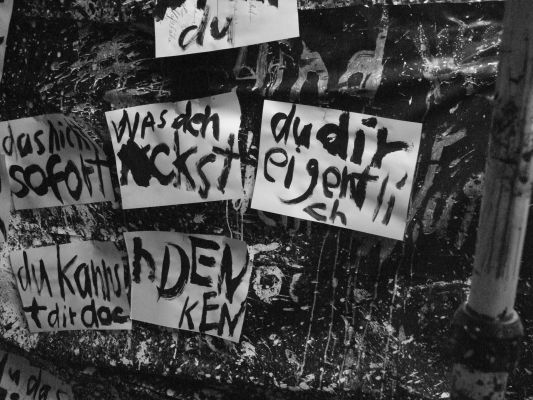 du
das nich
sofort
was dch
ckst
du dir
eigentli
ch
du kanns
t dir doc
h DEN
KEN
du das